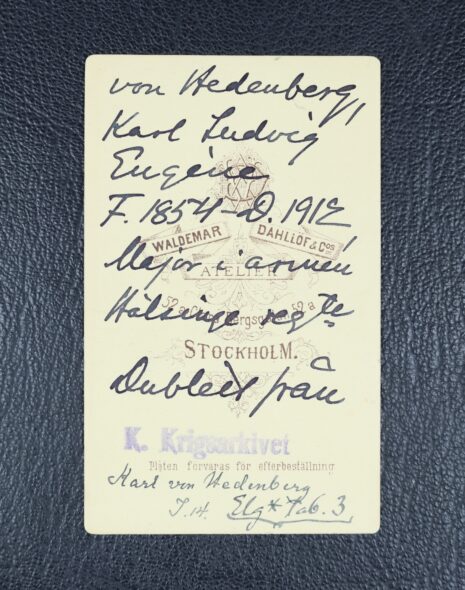 von Hedenberg,
Karl Ludvig
Eugène
F. 1854 - D. 1912
WALDEMAR DAHLLÖF & Cos
Major i armén
ATELIER
52 a 52 a
Hälsinge regte
STOCKHOLM.
Dublett från
K. Krigsarkivet
Plåten förvaras för efterbeställning
Karl von Hedenberg
I.14. Elg* Tab. 3